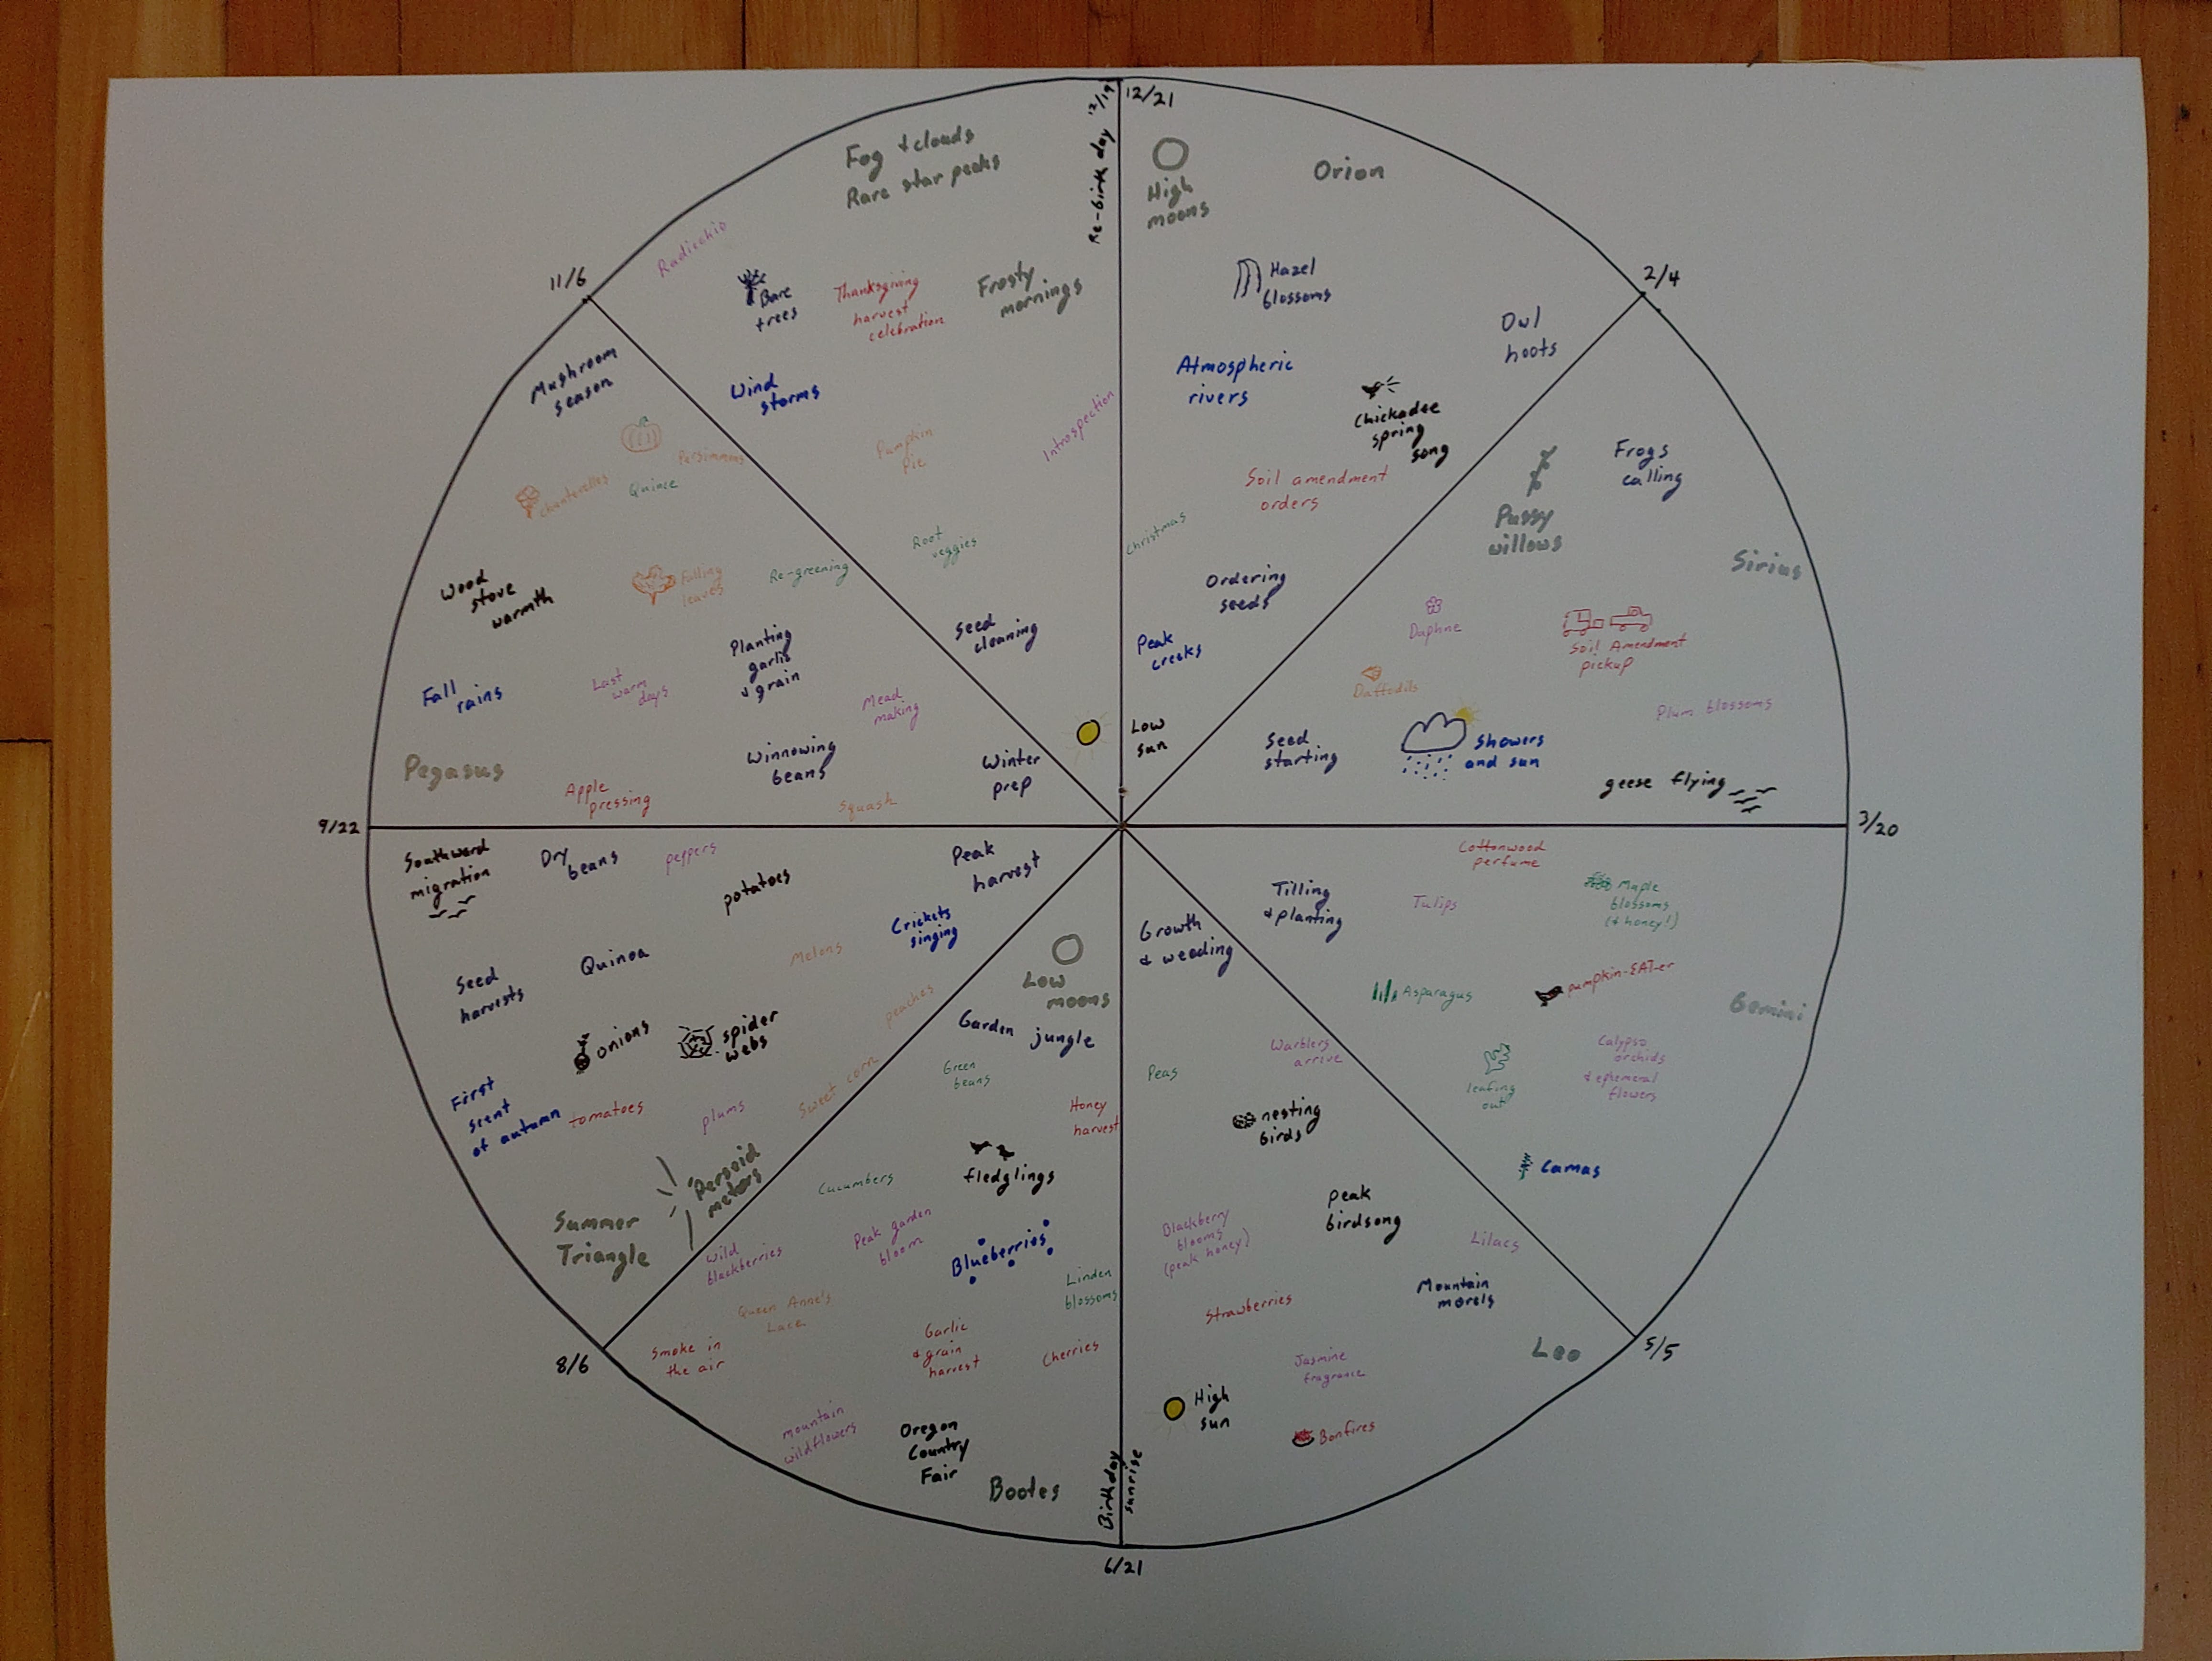 12/21
High
moons
Orion
Hazel
blossoms
Atmospheric
rivers
Owl
hoots
Chickadee
spring
song
Soil amendment
orders
Christmas
Ordering
seeds
Peak
creeks
Low
sun
2/4
Frogs
calling
Pussy
willows
Sirius
Daphne
Soil Amendment
pickup
Daffodils
Plum blossoms
Seed
starting
Showers
and sun
geese flying
3/20
Cottonwood
perfume
Tilling
& planting
Tulips
Maple
blossoms
(& honey!)
Asparagus
pumpkin-EAT-er
Gemini
leafing
out
Calypso
orchids
& ephemeral
flowers
Camas
5/5
Growth
& weeding
Peas
Warblers
arrive
nesting
birds
Peak
birdsong
Blackberry
blooms
(peak honey)
Lilacs
Strawberries
Mountain
morels
Leo
Jasmine
fragrance
High
sun
Bonfires
Birthday
sunrise
6/21
Low
moons
Garden jungle
Green
beans
Honey
harvest
fledglings
Cucumbers
Peak garden
bloom
Blueberries
Wild
blackberries
Linden
blossoms
Queen Anne's
Lace
Smoke in
the air
Garlic
& grain
harvest
Cherries
mountain
wildflowers
Oregon
Country
Fair
Bootes
8/6
Southward
migration
Dry
beans
peppers
potatoes
Peak
harvest
Crickets
singing
Melons
Quinoa
Seed
harvests
peaches
onions
spider
webs
Sweet corn
First
scent
of autumn
tomatoes
plums
Perseid
meteors
Summer
Triangle
9/22
Mushroom
season
Persimmons
chanterelles
Quince
Wood
stove
warmth
Falling
leaves
Re-greening
Planting
garlic
& grain
Fall
rains
Last
warm
days
Mead
making
Pegasus
Winnowing
beans
Winter
prep
Apple
pressing
Squash
11/6
Fog & clouds
Rare star peeks
Radicchio
Bare
trees
Thanksgiving
harvest
celebration
Frosty
mornings
Wind
storms
Pumpkin
pie
Introspection
Root
veggies
Seed
cleaning
Re-birth day 12/19